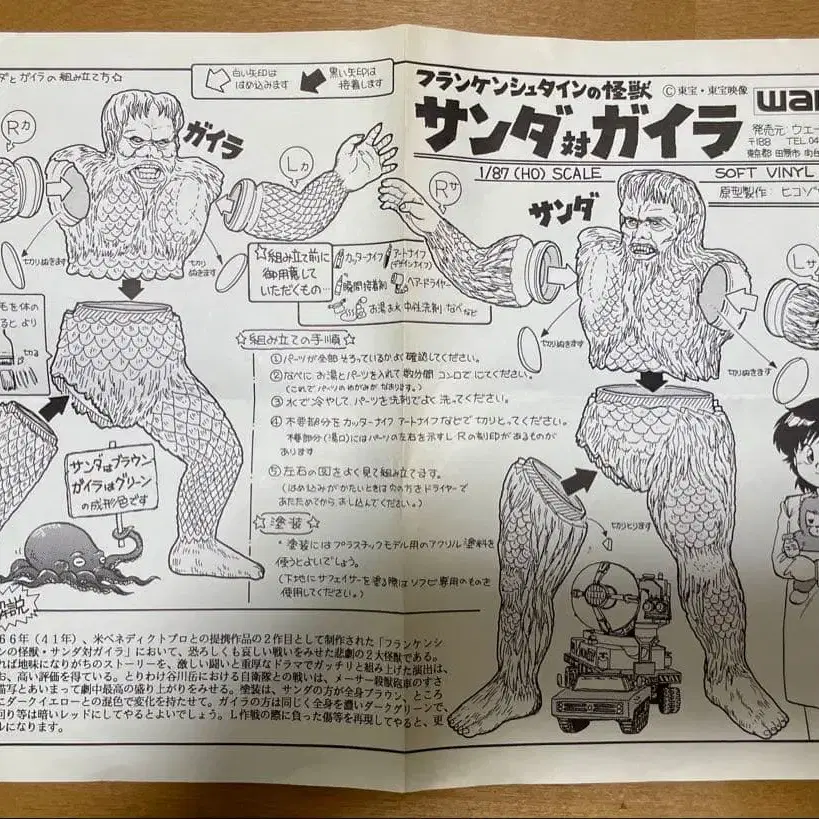 ダとガイラの組み立て方☆
白い矢印は
はめ込みます
黒い矢印は
接着します
フランケンシュタインの怪獣
©東宝・東宝映像
サンダ対ガイラ
発売元:ウエー
〒188 TEL 04
1/87 (HO) SCALE
SOFT VINYL
原型製作:ヒコ
ガイラ
サンダ
Rガ
Lガ
Rサ
Lサ
切りぬきます
切りぬきます
切りぬきます
切りぬきます
☆組み立て前に
御用意して
いただくもの…
カッターナイフ
アートナイフ
(デザインナイフ)
瞬間接着剤
ヘアードライヤー
お湯 お水 中性洗剤 なべなど
毛を体の
ると より
切る
☆組み立ての手順☆
①パーツが全部そろっているかよく確認してください。
②なべに お湯とパーツを入れて数分間 コンロでにてください。
(これでパーツのゆがみがなおります。)
③水で冷やしてパーツを洗剤でよく洗ってください。
④不要部分をカッターナイフ アートナイフなどで切りとってください。
不要部分(湯口)にはパーツの左右を示すL Rの刻印があるものが
あります
⑤左右の図をよく見て組み立てます。
(はめ込みがかたいときは穴の方をドライヤーで
あたためてから おし込んでください。)
☆塗装☆
・塗装にはプラスチックモデル用のアクリル塗料を
使うとよいでしょう。
(下地にサフェイサーを塗る際はソフビ専用のものを
使用してください。)
サンダはブラウン
ガイラはグリーン
の成形色です
切りとります
解説
66年(41年)、米ベネディクトプロとの提携作品の2作目として制作された「フランケンシ
ンの怪獣・サンダ対ガイラ」において、恐ろしくも哀しい戦いをみせた悲劇の2大怪獣である。
れば地味になりがちのストーリーを、激しい闘いと重厚なドラマでガッチリと組み上げた演出は、
お、高い評価を得ている。とりわけ谷川岳における自衛隊との戦いは、メーサー殺獣砲車のすさ
描写とあいまって劇中最高の盛り上がりをみせる。塗装は、サンダの方が全身ブラウン、ところ
にダークイエローとの混色で変化を持たせて。ガイラの方は同じく全身を濃いダークグリーンで、
回り等は暗いレッドにしてやるとよいでしょう。L作戦の際に負った傷等を再現してやると、更
ルになります。